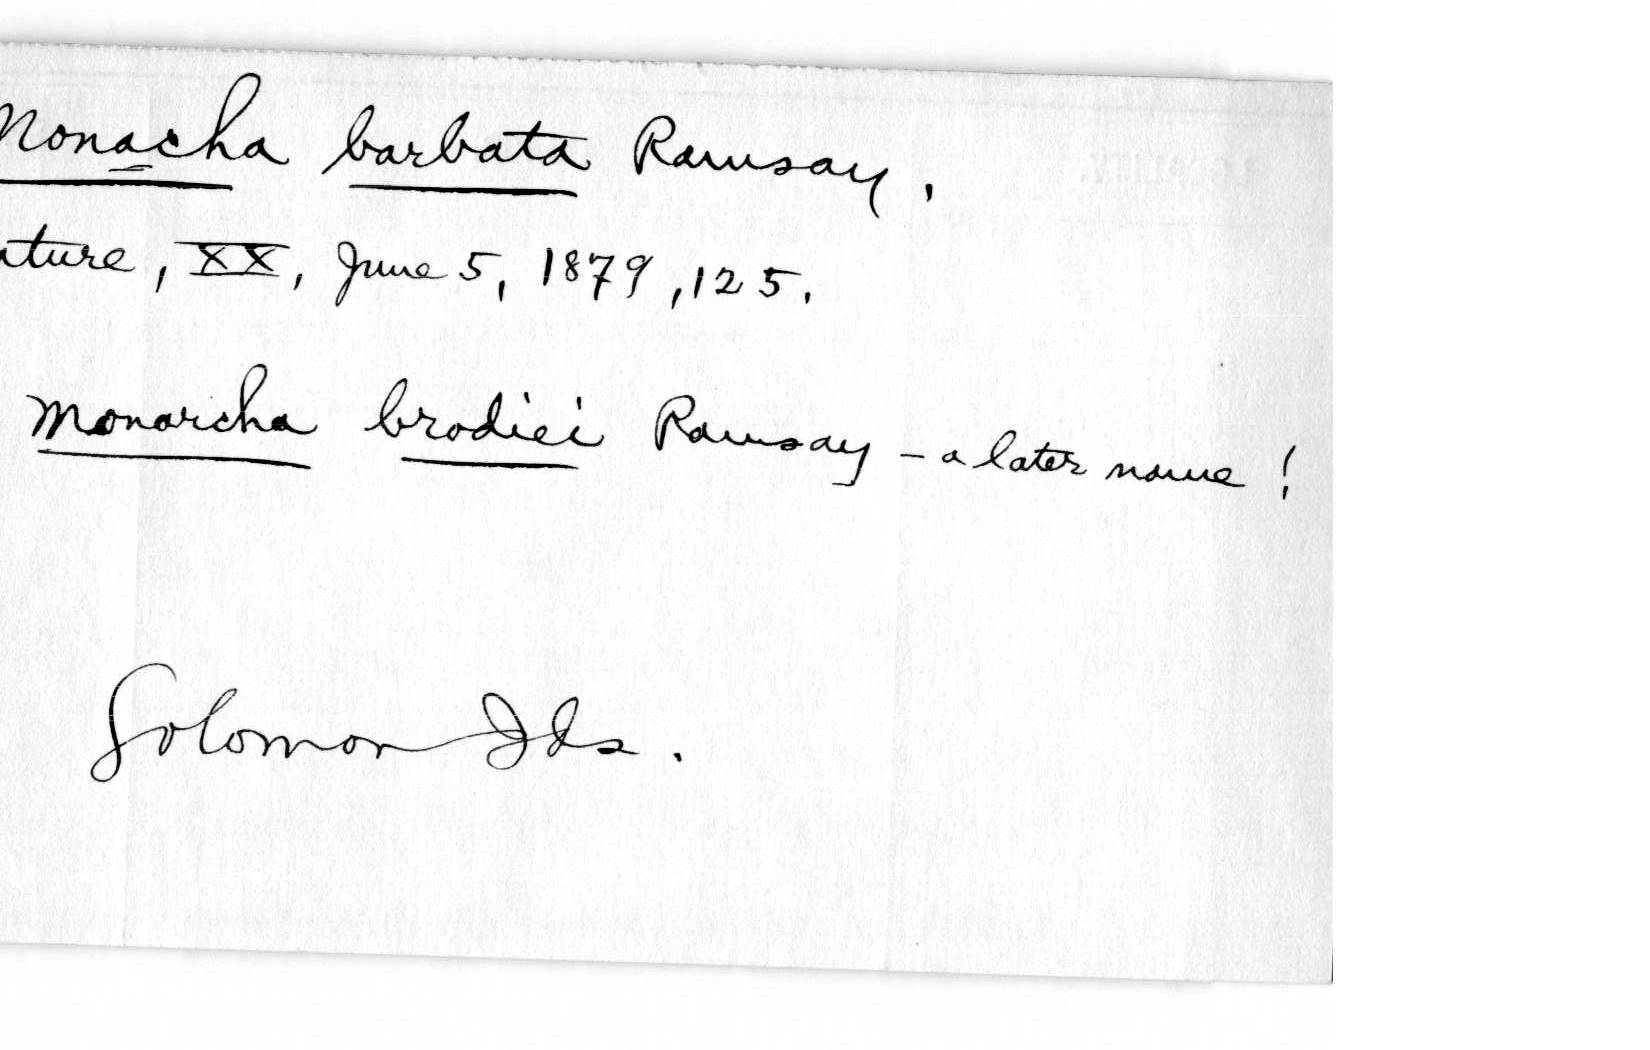 Monacha barbata Ramsay.
ature, XX, June 5, 1879, 125.
Monarcha brodiei Ramsay – a later name!
Solomon Ids.